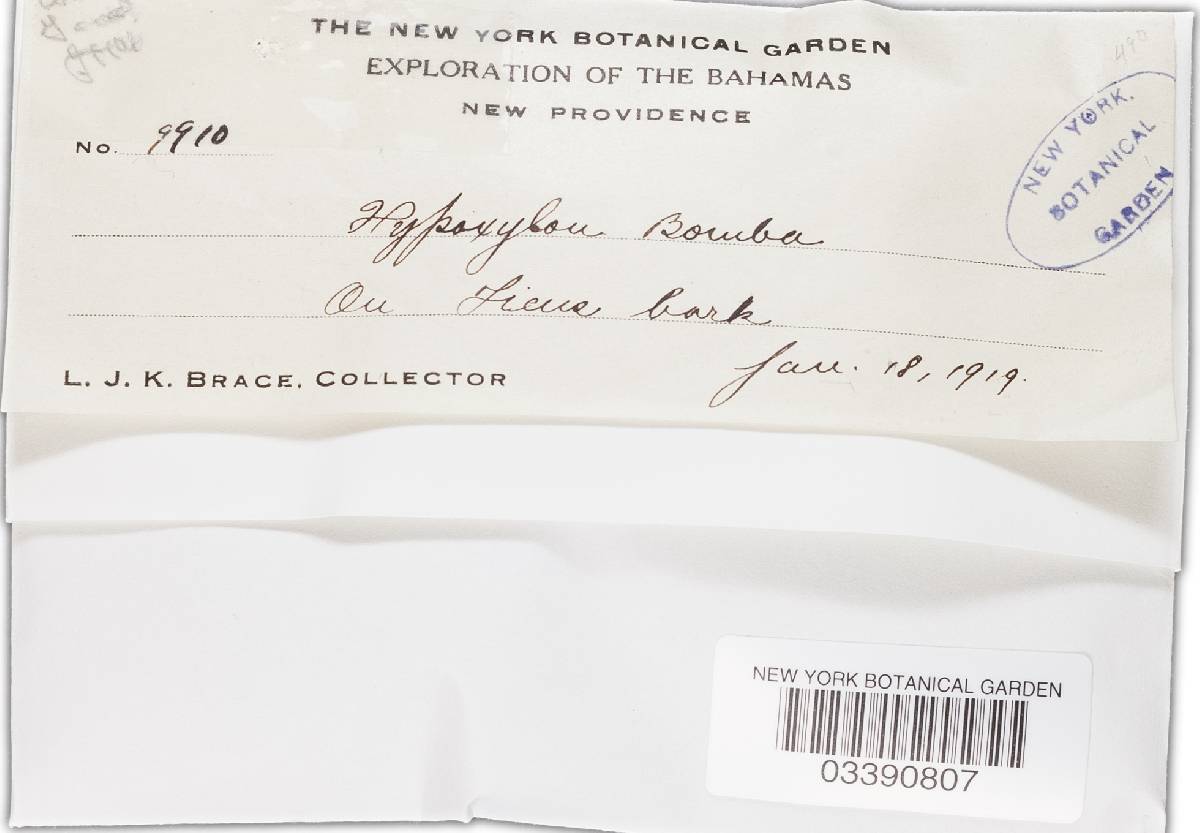 THE NEW YORK BOTANICAL GARDEN
EXPLORATION OF THE BAHAMAS
NEW PROVIDENCE
No. 9910
Hypoxylon Bomba
On Ficus bark
Jan. 18, 1919.
L. J. K. BRACE, COLLECTOR
490
NEW YORK.
BOTANICAL
GARDEN
NEW YORK BOTANICAL GARDEN
03390807